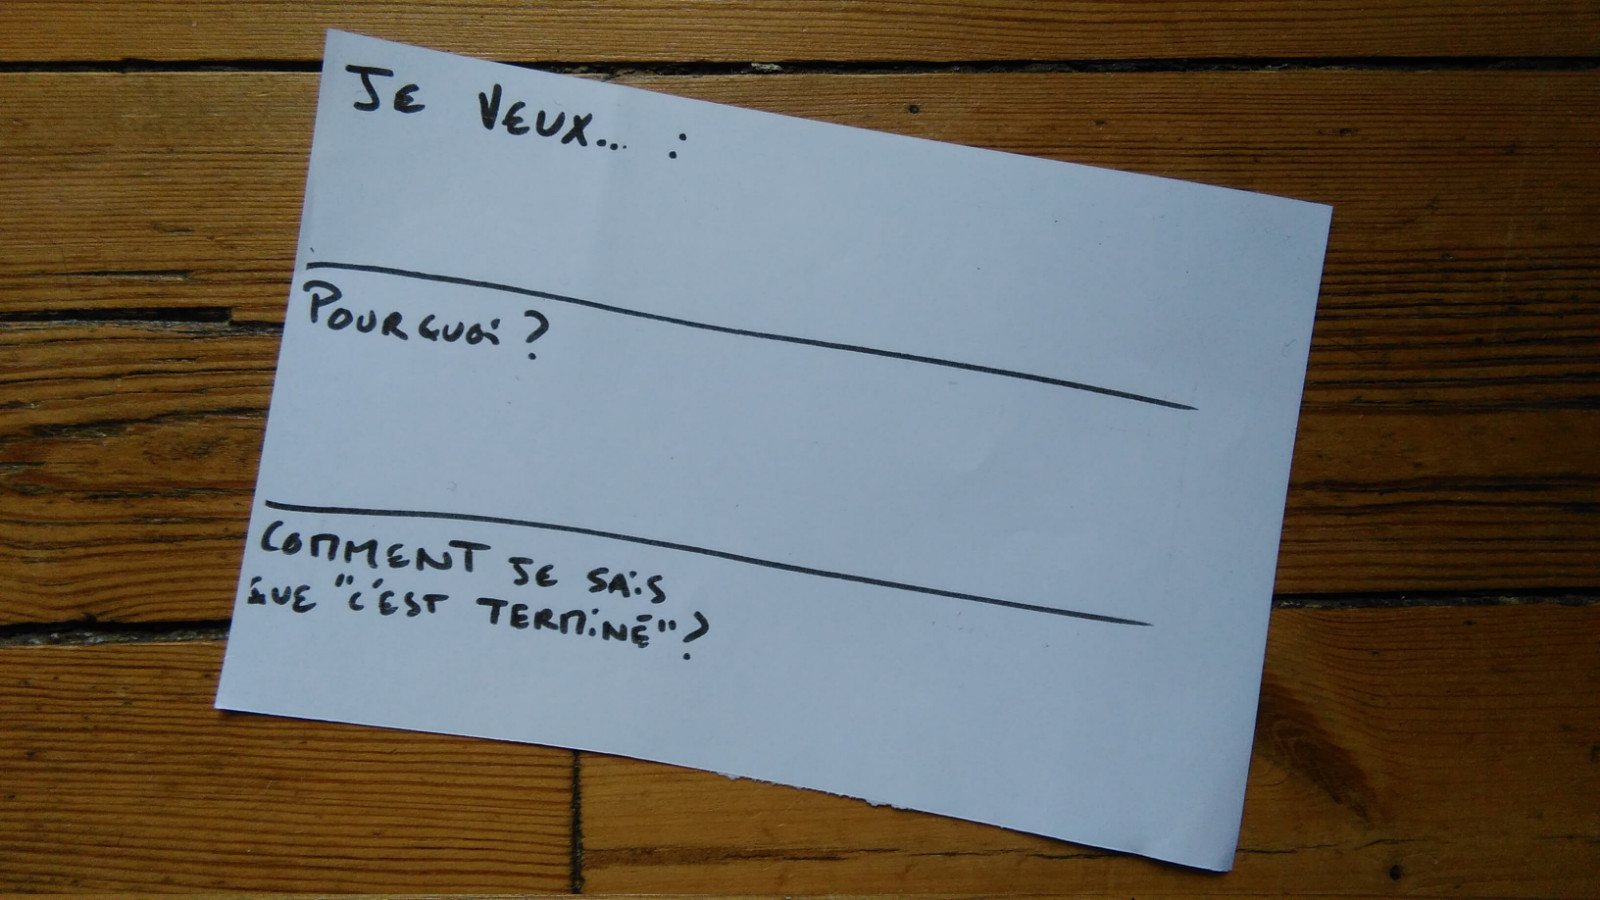 JE VEUX... :
POURQUOI ?
COMMENT JE SAIS
QUE "C'EST TERMINÉ" ?